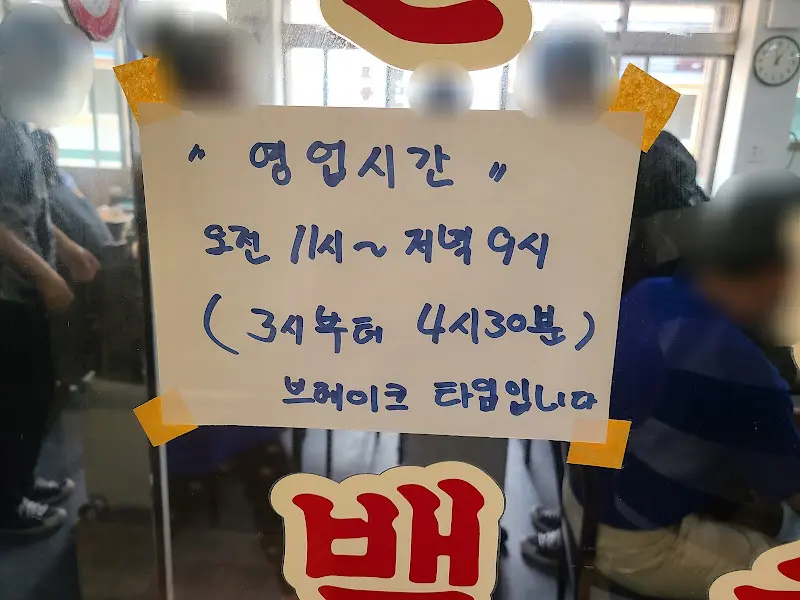 " 영업시간 "
오전 11시~저녁 9시
(3시부터 4시30분)
브레이크 타임입니다
백